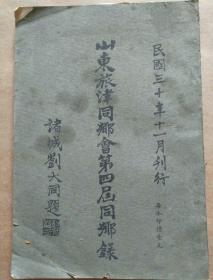 民國三十年十一月刊行
每本印價壹元
山東旅津同鄉會第四屆同鄉錄
諸城劉大同題